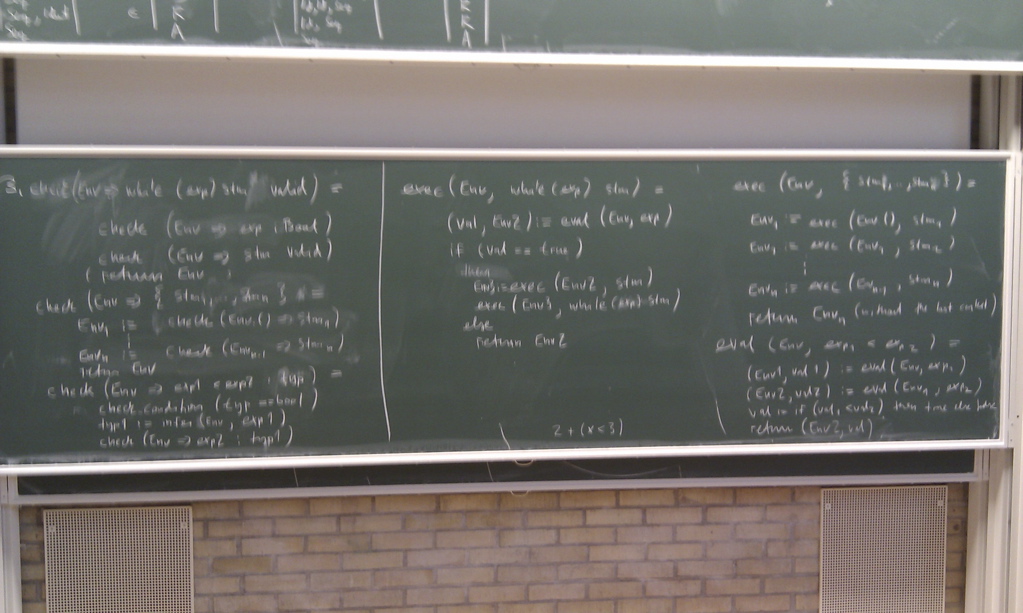 3. check (Env => while (exp) stm valid) =
check (Env => exp : Bool)
check (Env => stm valid)
return Env
check (Env => { stm1, ..., stmn } =
Env1 := check (Env.() => stm1)
⋮
Envn := check (Envn-1 => stmn)
return Env
check (Env => exp1 < exp2 : typ) =
check condition (typ == bool)
typ1 := infer (Env, exp1)
check (Env => exp2 : typ1)
exec (Env, while (exp) stm) =
(val, Env2) := eval (Env, exp)
if (val == true)
then
Env3 := exec (Env2, stm)
exec (Env3, while (exp) stm)
else
return Env2
2 + (x < 3)
exec (Env, { stm1, ..., stmn }) =
Env1 := exec (Env.(), stm1)
Env1 := exec (Env1, stm2)
⋮
Envn := exec (Envn-1, stmn)
return Envn (without the last context)
eval (Env, exp1 < exp2) =
(Env1, val1) := eval (Env, exp1)
(Env2, val2) := eval (Env1, exp2)
val := if (val1 < val2) then true else false
return (Env2, val)